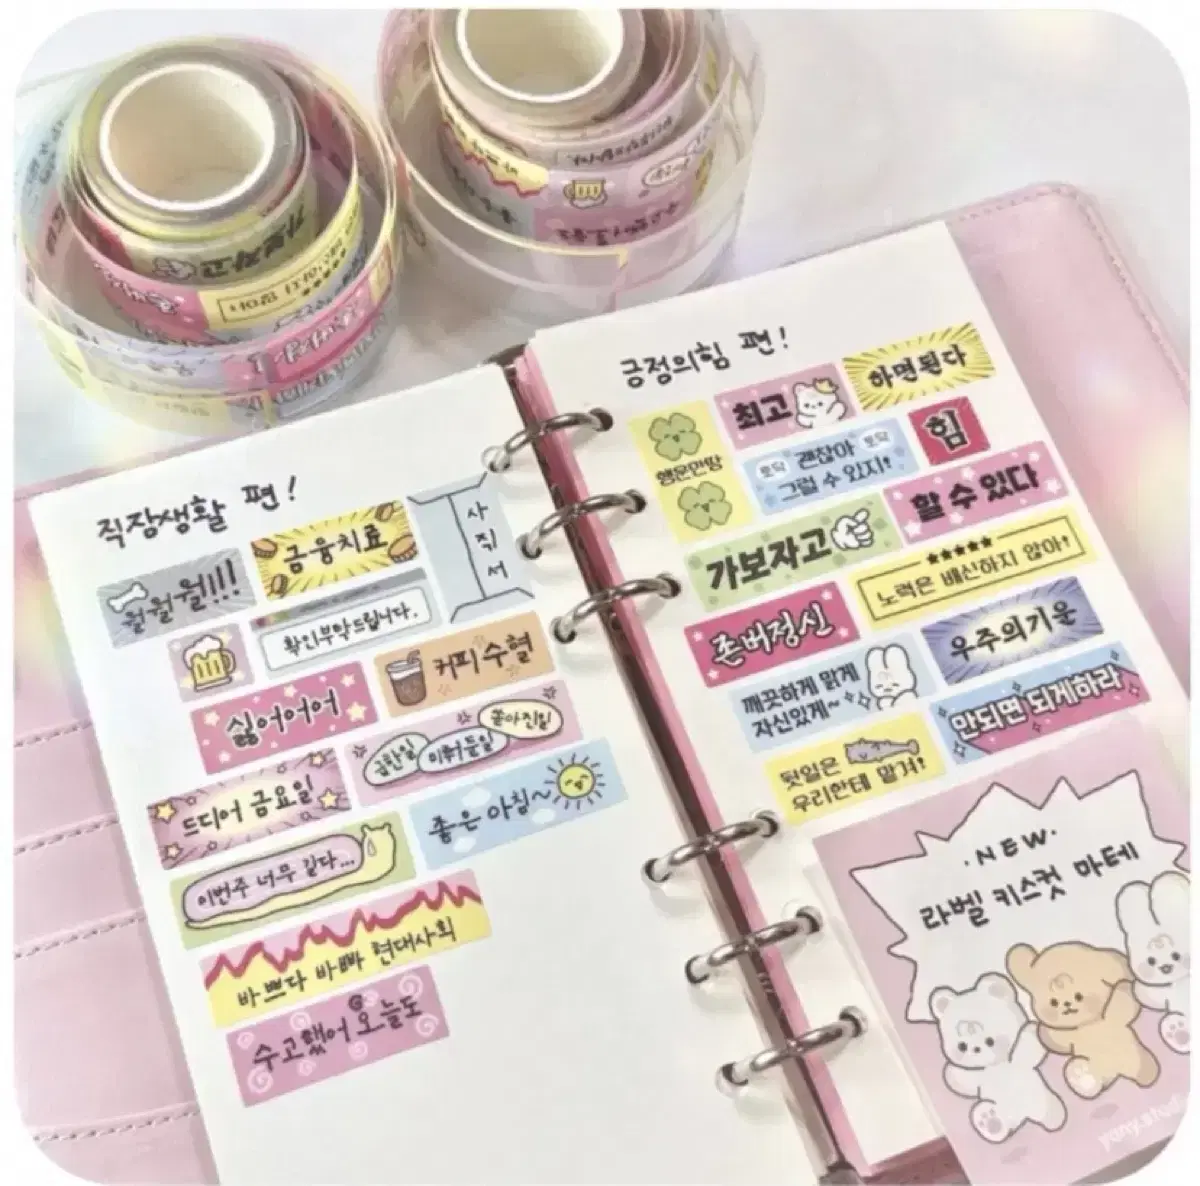 직장생활 편!
월월월!!!
금융치료
사직서
확인부탁드립니다.
커피수혈
싫어어어
급한일
미뤄둔일
쏟아진일
드디어 금요일
좋은 아침~
이번주 너무 길다...
바쁘다 바빠 현대사회
수고했어 오늘도
긍정의힘 편!
행운만땅
최고
하면된다
토닥
괜찮아
토닥
그럴 수 있지!
힘
할 수 있다
가보자고
★★★★★
노력은 배신하지 않아!
존버정신
우주의기운
깨끗하게 맑게
자신있게~
안되면 되게하라
뒷일은
우리한테 맡겨!
·NEW·
라벨 키스컷 마테
가보자고